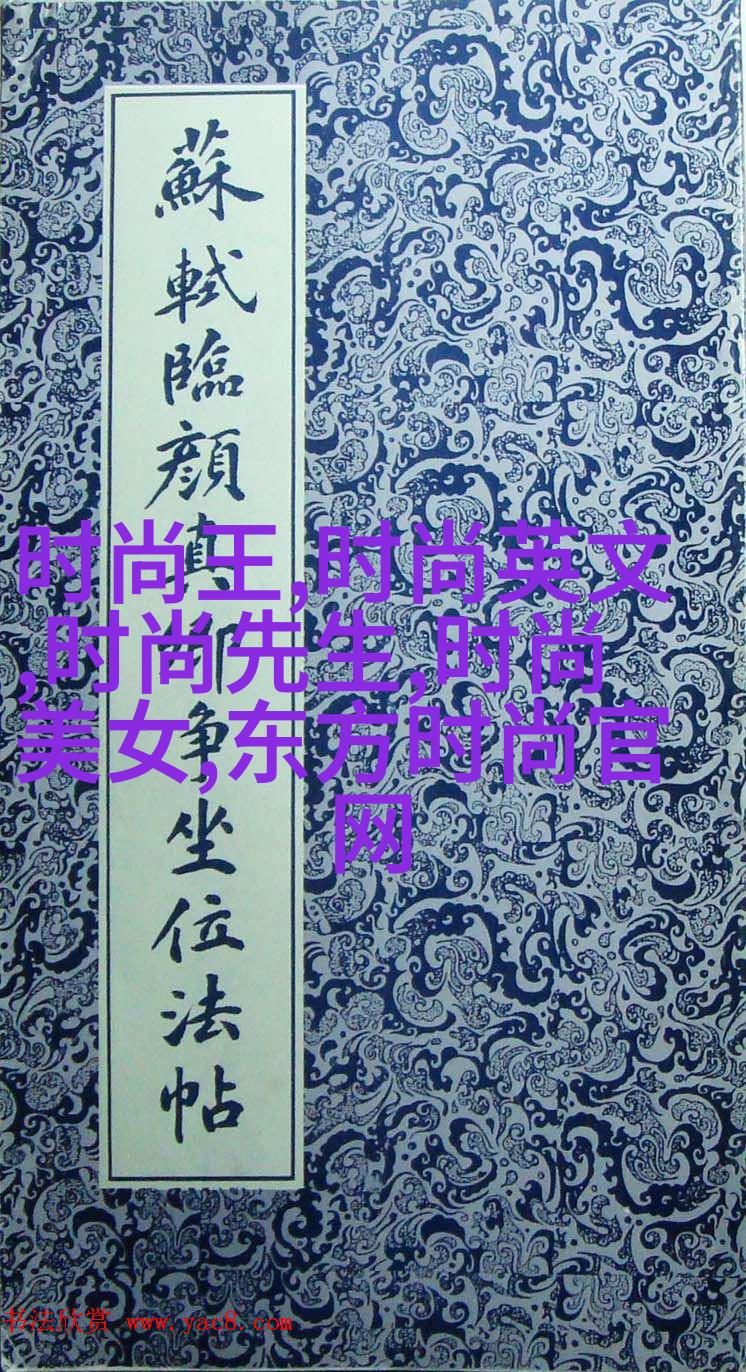 蘇軾臨顔真卿争坐位法帖
时尚王,时尚英文
,时尚先生,时尚
美女,东方时尚官
网
书法欣赏 www.yac8.com